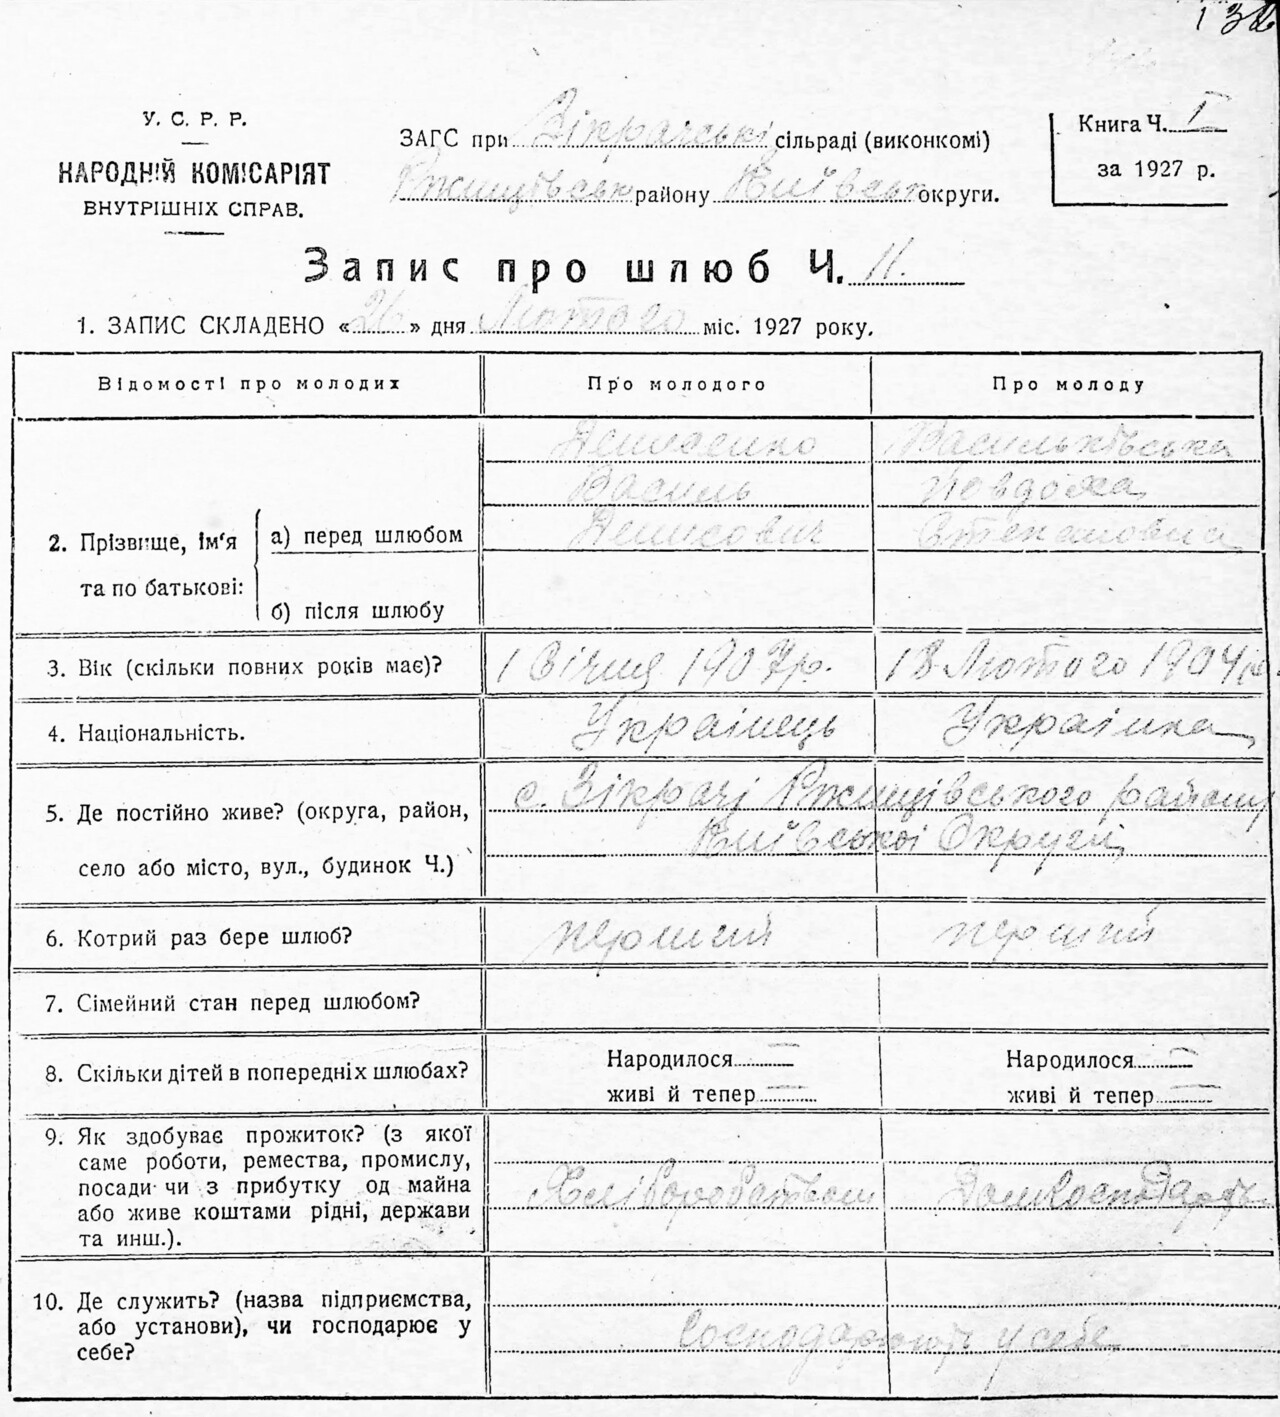 132
У. С. Р. Р.
НАРОДНІЙ КОМІСАРІЯТ
ВНУТРІШНІХ СПРАВ.
ЗАГС при Зікрачські сільраді (виконкомі)
Ржищівськ району Київськ округи.
Книга Ч. I
за 1927 р.
Запис про шлюб Ч. 11.
1. ЗАПИС СКЛАДЕНО «26» дня Лютого міс. 1927 року.
Відомості про молодих
Про молодого
Про молоду
2. Прізвище, ім'я та по батькові:
а) перед шлюбом
б) після шлюбу
Денисенко
Василь
Денисович
Васильківська
Явдоха
Степановна
3. Вік (скільки повних років має)?
1 Січня 1907р.
18 Лютого 1904р.
4. Національність.
Українець
Українка
5. Де постійно живе? (округа, район,
село або місто, вул., будинок Ч.)
с. Зікрачі Ржищівського району
Київської Округи
6. Котрий раз бере шлюб?
перший
перший
7. Сімейний стан перед шлюбом?
8. Скільки дітей в попередніх шлюбах?
Народилося —
живі й тепер —
Народилося —
живі й тепер —
9. Як здобуває прожиток? (з якої
саме роботи, ремества, промислу,
посади чи з прибутку од майна
або живе коштами рідні, держави
та инш.).
Хліборобством
10. Де служить? (назва підприємства,
або установи), чи господарює у
себе?
Господарюють у себе